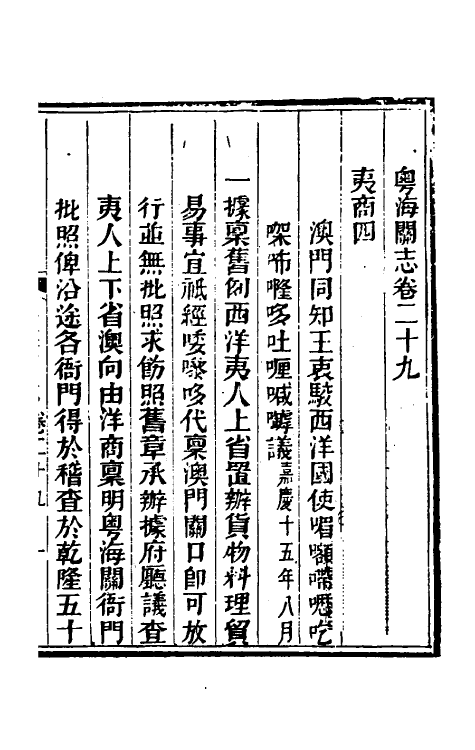 粵海關志卷二十九
夷商四
澳門同知王衷駿西洋國使嘪嚬嘺嚦吃
㗎咘嚨哆吐喱嘁嚤議嘉慶十五年八月
一據稟舊例西洋夷人上省置辦貨物料理貿
易事宜祗經唩嚟哆代稟澳門關口卽可放
行並無批照求飭照舊章承辦據府廳議查
夷人上下省澳向由洋商稟明粵海關衙門
批照俾沿途各衙門得於稽查於乾隆五十